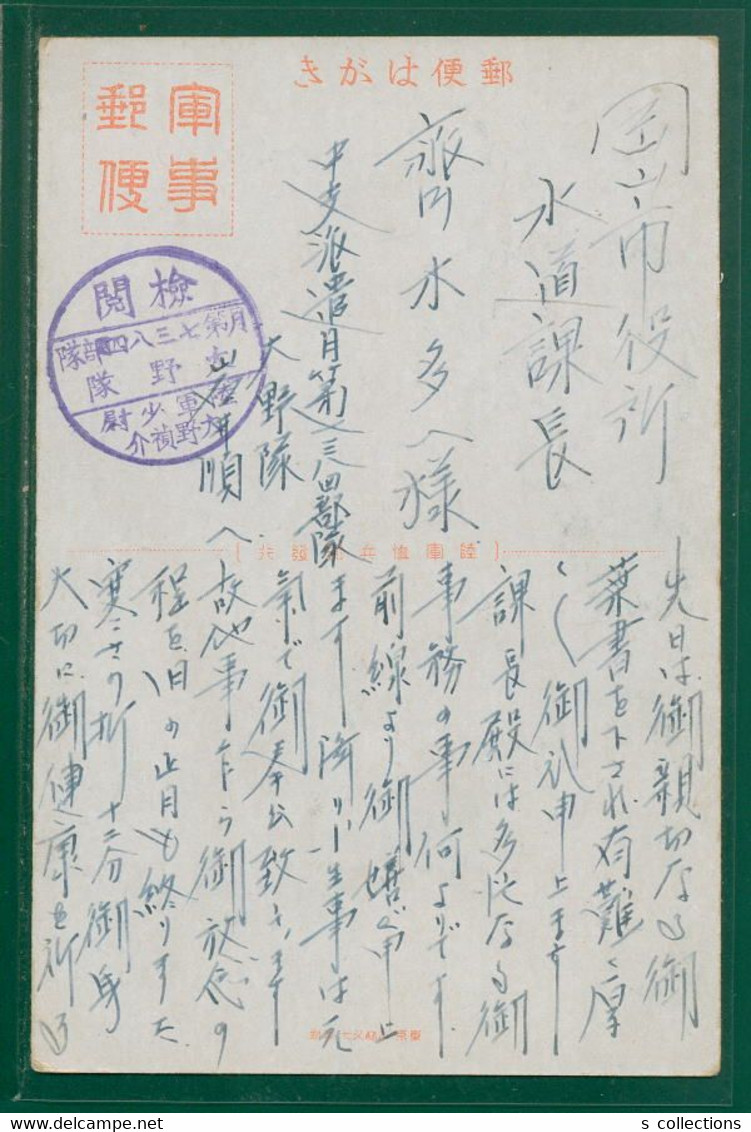 郵便はがき
軍事
郵便
岡山市役所
水道課長
水多八様
中支派遣月第七三八四部隊
大野隊
順へ
検閲
月第七三八四部隊
大野隊
陸軍少尉
大野禎介
先日は御親切なる御
葉書を下され有難く厚
く御礼申上ます
課長殿には多忙なる御
事務の事何よりです
前線より御喜び申上
ます 降りて小生事は元
氣で御奉公致します
故他事乍ら御放念の
程を 旧の正月も終りました
寒さの折十二分御身
大切に御健康を祈る
陸軍恤兵部發行